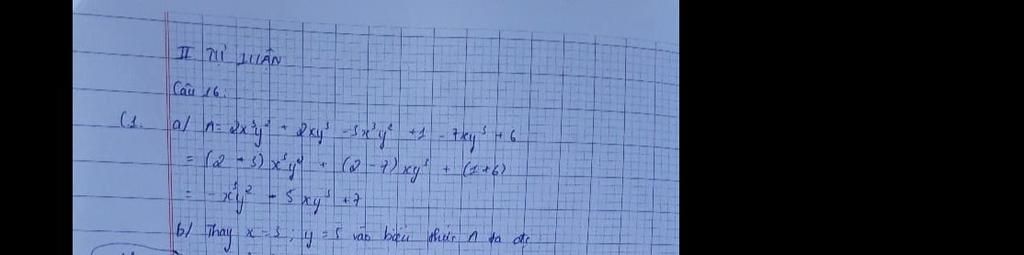 II TỰ LUẬN
Câu 16:
C1. a/ A = 2x³y² + 2xy³ - 3x³y² + 1 - 7xy³ + 6
= (2 - 3) x³y² + (2 - 7) xy³ + (1+6)
= -x³y² - 5xy³ + 7
b/ Thay x = 3; y = 5 vào biểu thức A ta đc